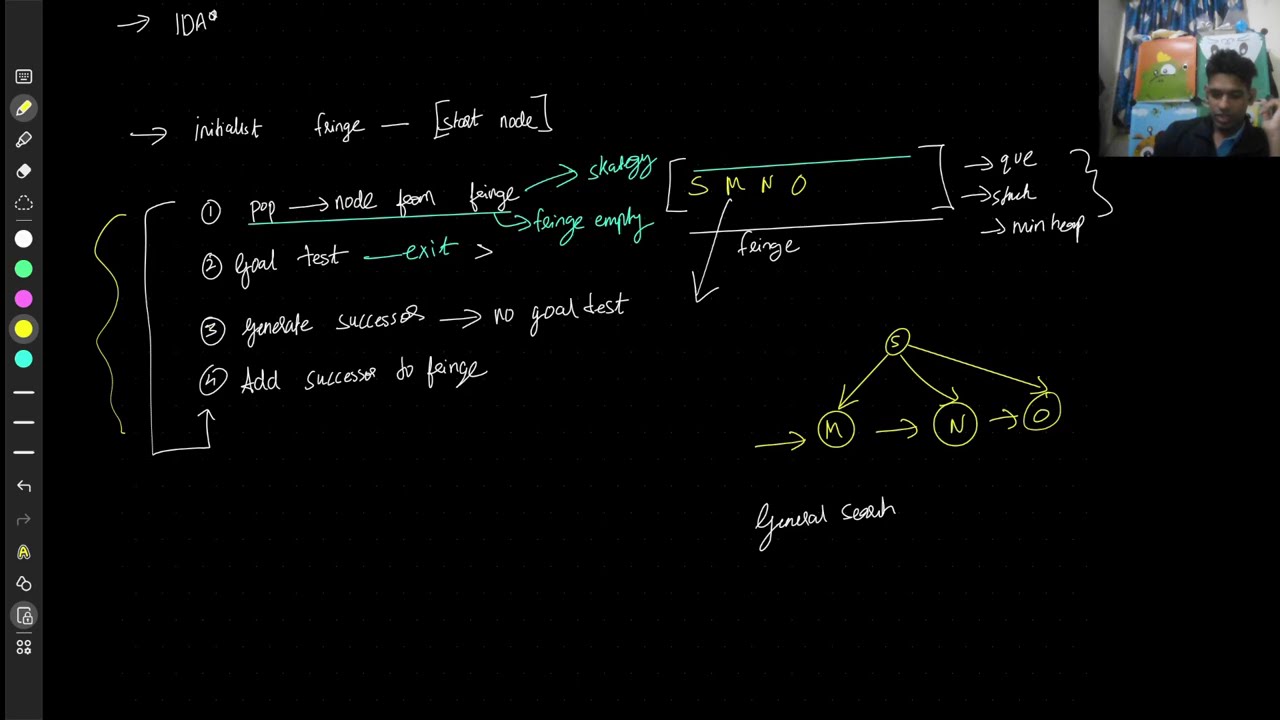 → IDA*
→ initialist fringe — [start node]
① pop → node from fringe → strategy
→ fringe empty
② Goal test — exit >
③ Generate successors → no goal test
④ Add successor to fringe
[S M N O]
fringe
→ que
→ stack
→ min heap
S
→ M → N → O
General search